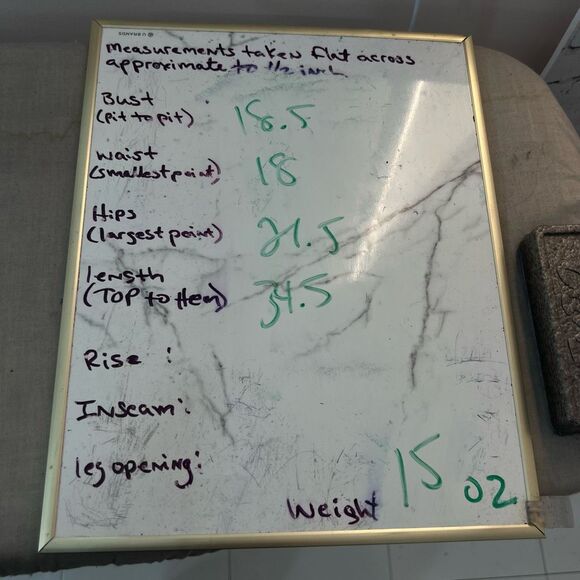 U BRANDS
Measurements taken flat across
approximate to 1/2 inch
Bust 18.5
(Pit to pit)
Waist 18
(smallest point)
Hips 21.5
(largest point)
length 34.5
(TOP to Hem)
Rise :
Inseam:
leg opening:
Weight 15 oz